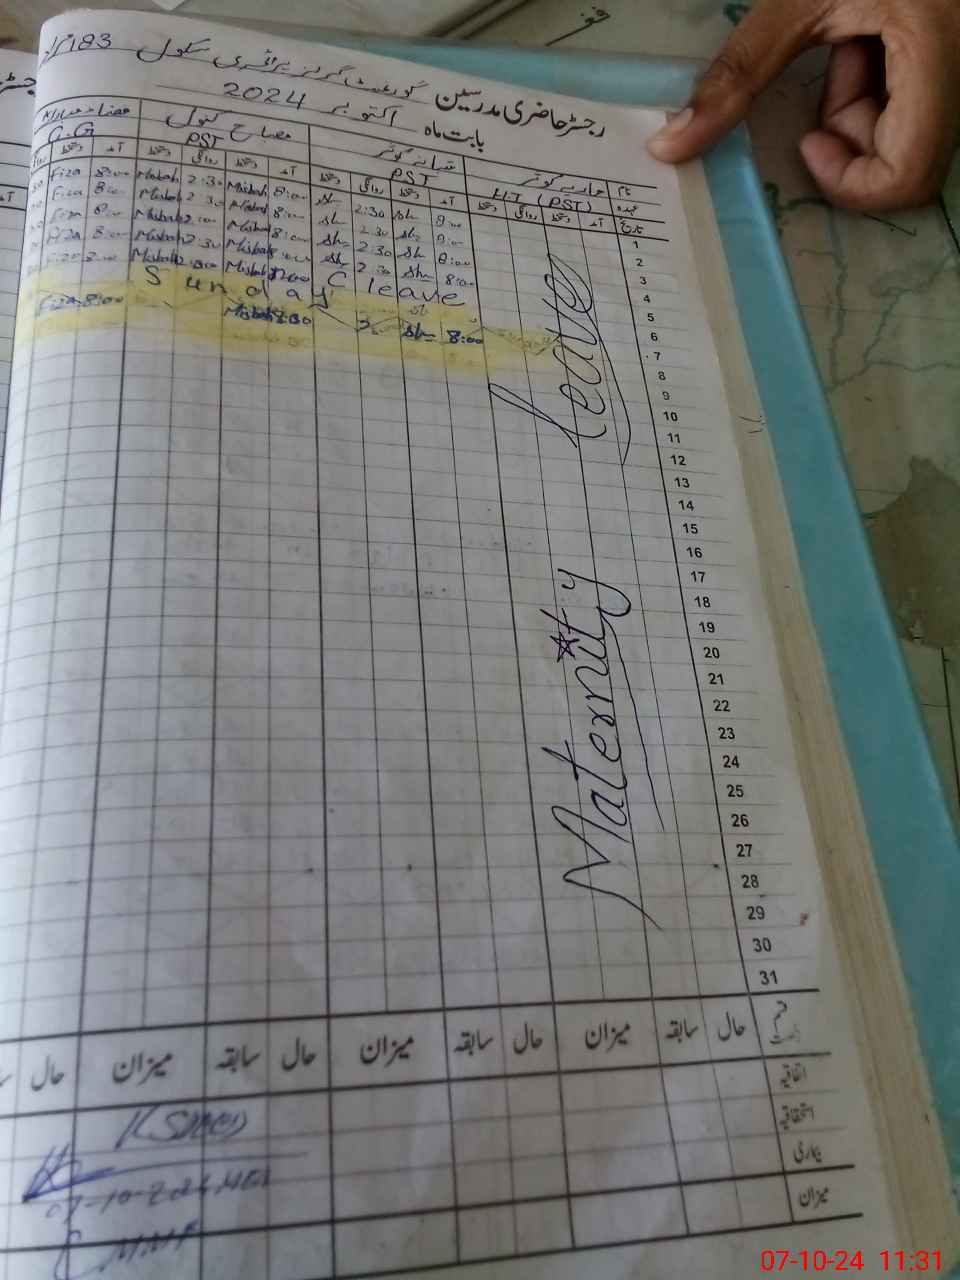 رجسٹر حاضری مدرسین گورنمنٹ گرلز پرائمری سکول
183
بابت ماہ اکتوبر 2024
نام
عہدہ H.T (PST) PST PST C.G
تاریخ آمد دستخط روانگی دستخط آمد دستخط روانگی دستخط آمد دستخط روانگی دستخط آمد
1 8:00 Sh 2:30 Sh 8:00 Misbah 2:30 Misbah 8:00 Fiza
2 8:00 Sh 2:30 Sh 8:00 Misbah 2:30 Misbah 8:00 Fiza
3 8:00 Sh 2:30 Sh 8:00 Misbah 2:00 Misbah 8:00 Fiza
4 8:00 Sh 2:30 Sh 8:00 Misbah 2:30 Misbah 8:00 Fiza
5 C leave
6 Sunday
7 8:00 Sh 8:00 Misbah 8:00 Fiza
8
9
10
11
12
13
14
15
16
17
18
19
20
21
22
23
24
25
26
27
28
29
30
31
Maternity leave
حال سابقہ میزان حال سابقہ میزان حال سابقہ میزان حال
اتفاقیہ
استحقاقیہ
بیماری
میزان
07-10-24 11:31